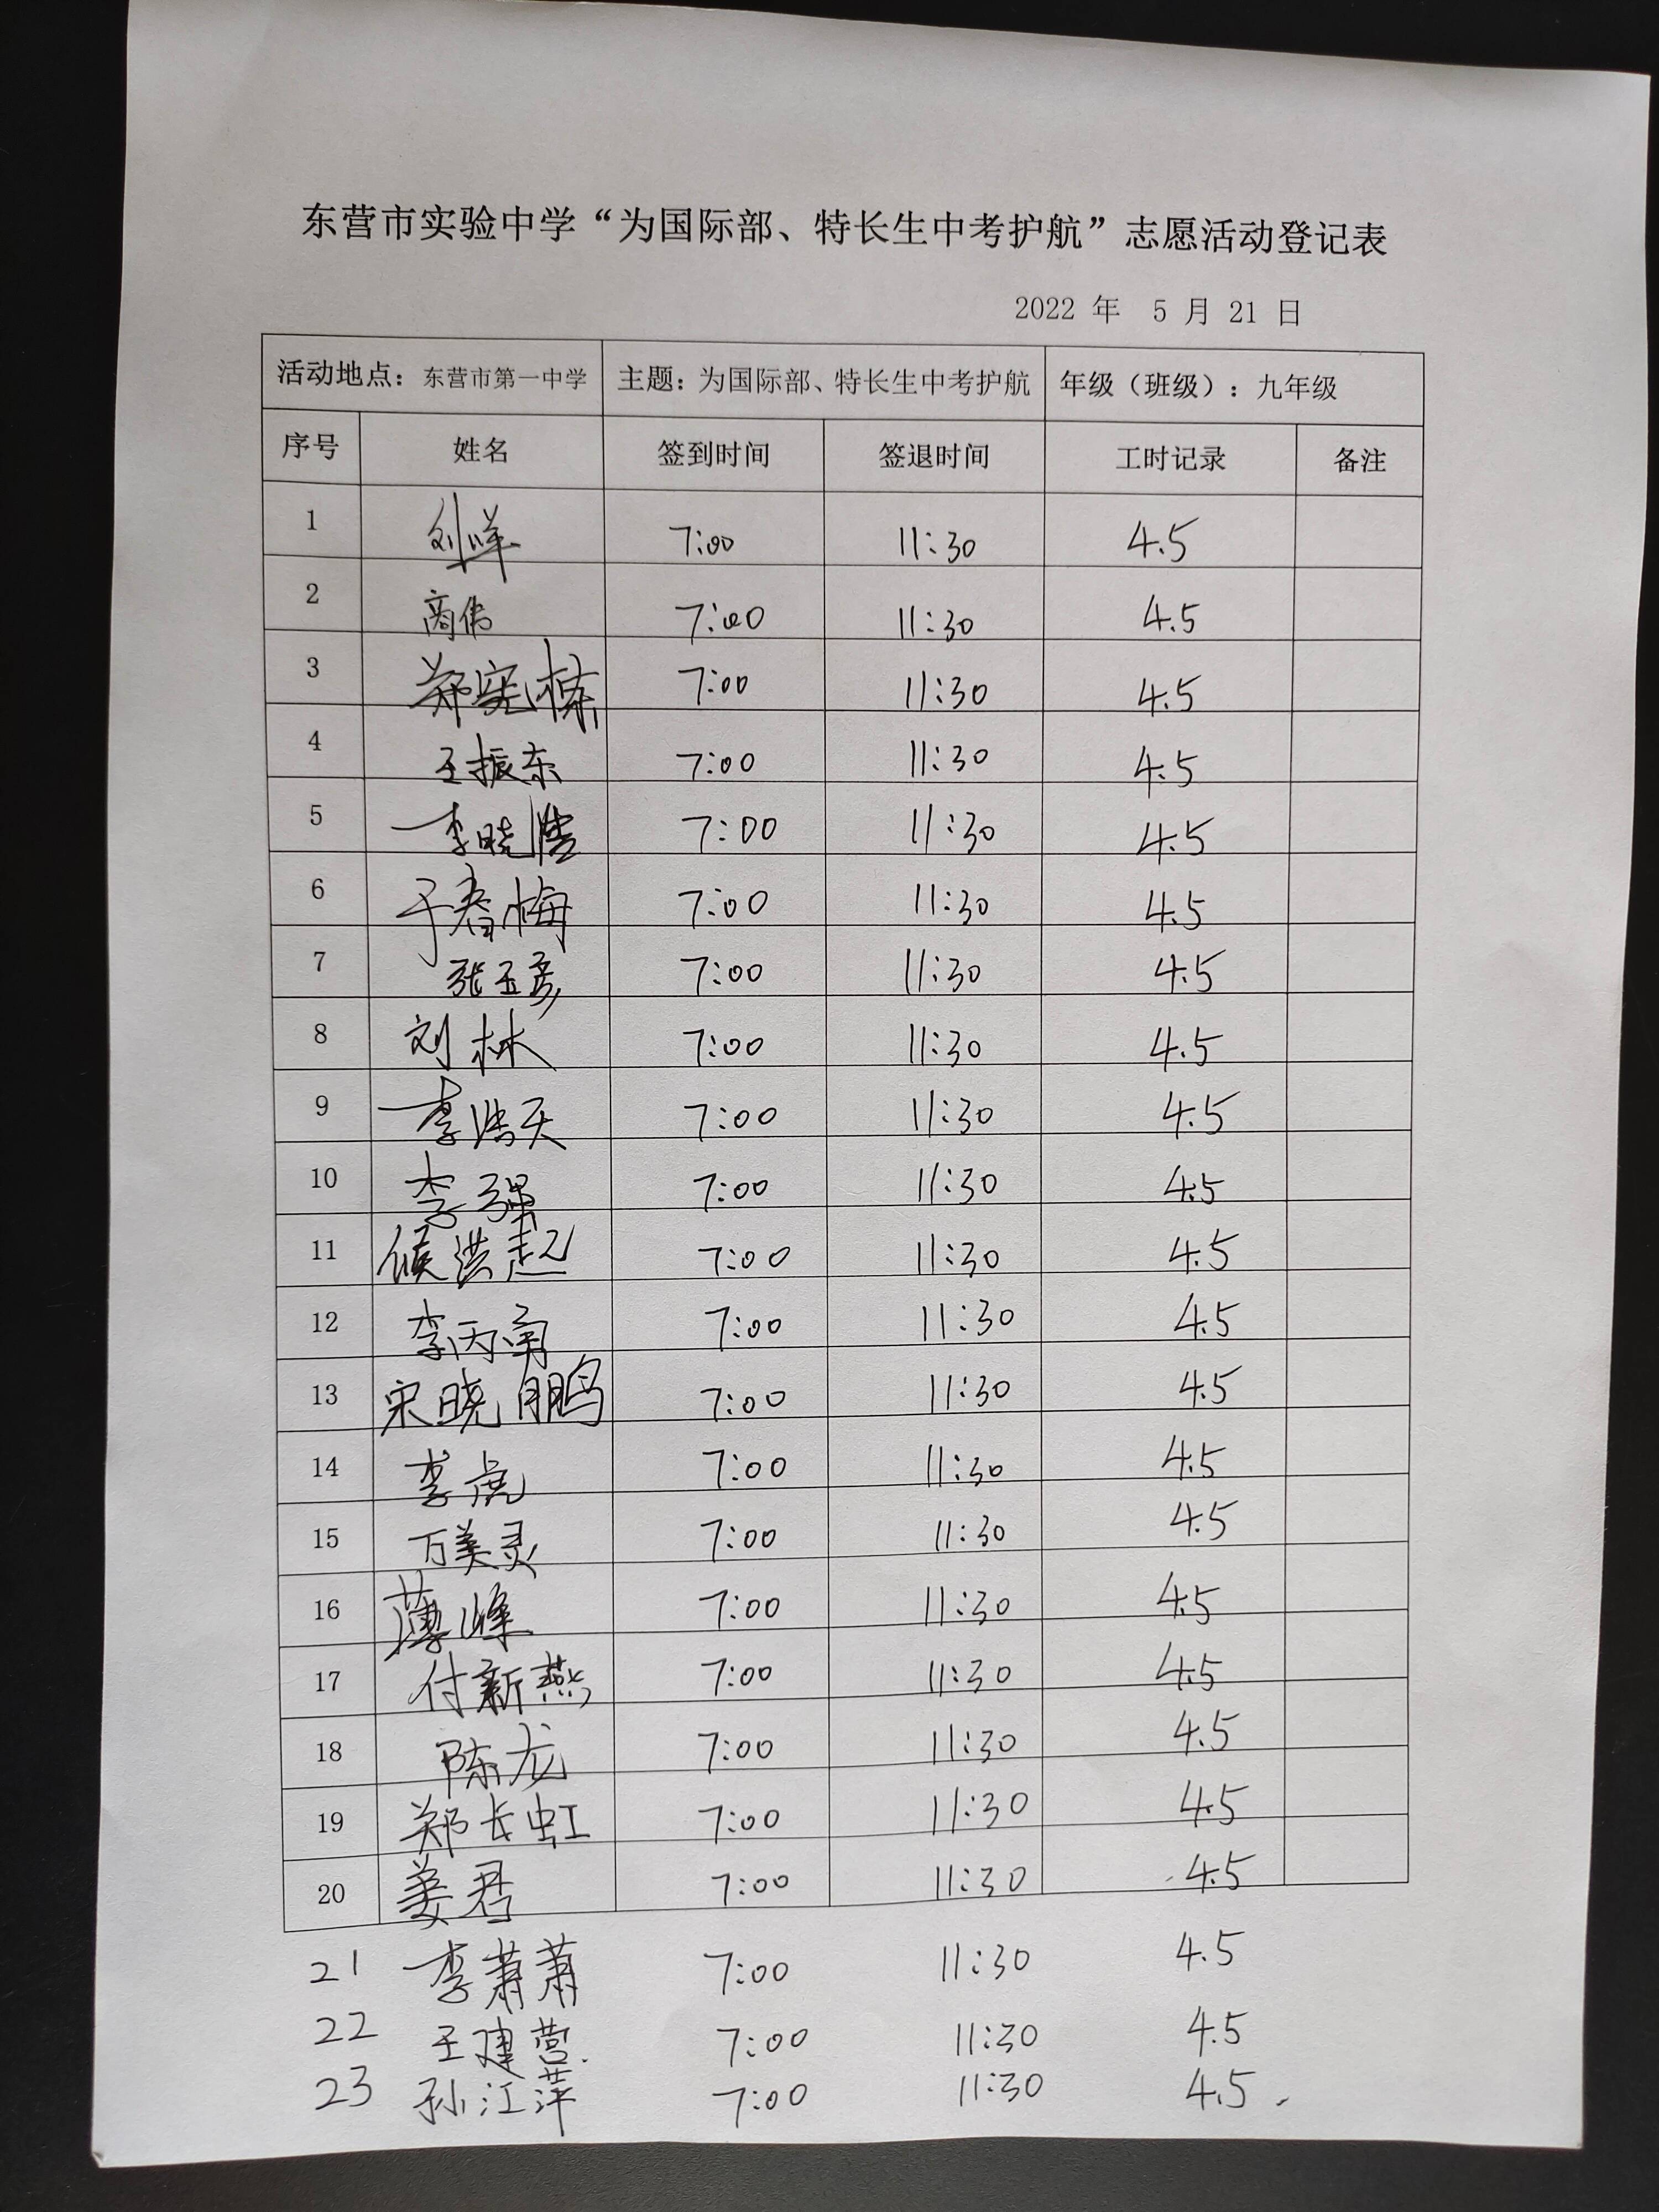 东营市实验中学“为国际部、特长生中考护航”志愿活动登记表
2022 年 5 月 21 日
活动地点：东营市第一中学 主题：为国际部、特长生中考护航 年级（班级）：九年级
序号 姓名 签到时间 签退时间 工时记录 备注
1 刘洋 7:00 11:30 4.5
2 商伟 7:00 11:30 4.5
3 郑宪栋 7:00 11:30 4.5
4 王振东 7:00 11:30 4.5
5 李晓 7:00 11:30 4.5
6 于春梅 7:00 11:30 4.5
7 张玉彦 7:00 11:30 4.5
8 刘林 7:00 11:30 4.5
9 李浩天 7:00 11:30 4.5
10 李强 7:00 11:30 4.5
11 侯洪起 7:00 11:30 4.5
12 李丙南 7:00 11:30 4.5
13 宋晓鹏 7:00 11:30 4.5
14 李虎 7:00 11:30 4.5
15 万美灵 7:00 11:30 4.5
16 薄峰 7:00 11:30 4.5
17 付新燕 7:00 11:30 4.5
18 陈龙 7:00 11:30 4.5
19 郑长虹 7:00 11:30 4.5
20 姜君 7:00 11:30 4.5
21 李萧萧 7:00 11:30 4.5
22 王建营 7:00 11:30 4.5
23 孙江萍 7:00 11:30 4.5